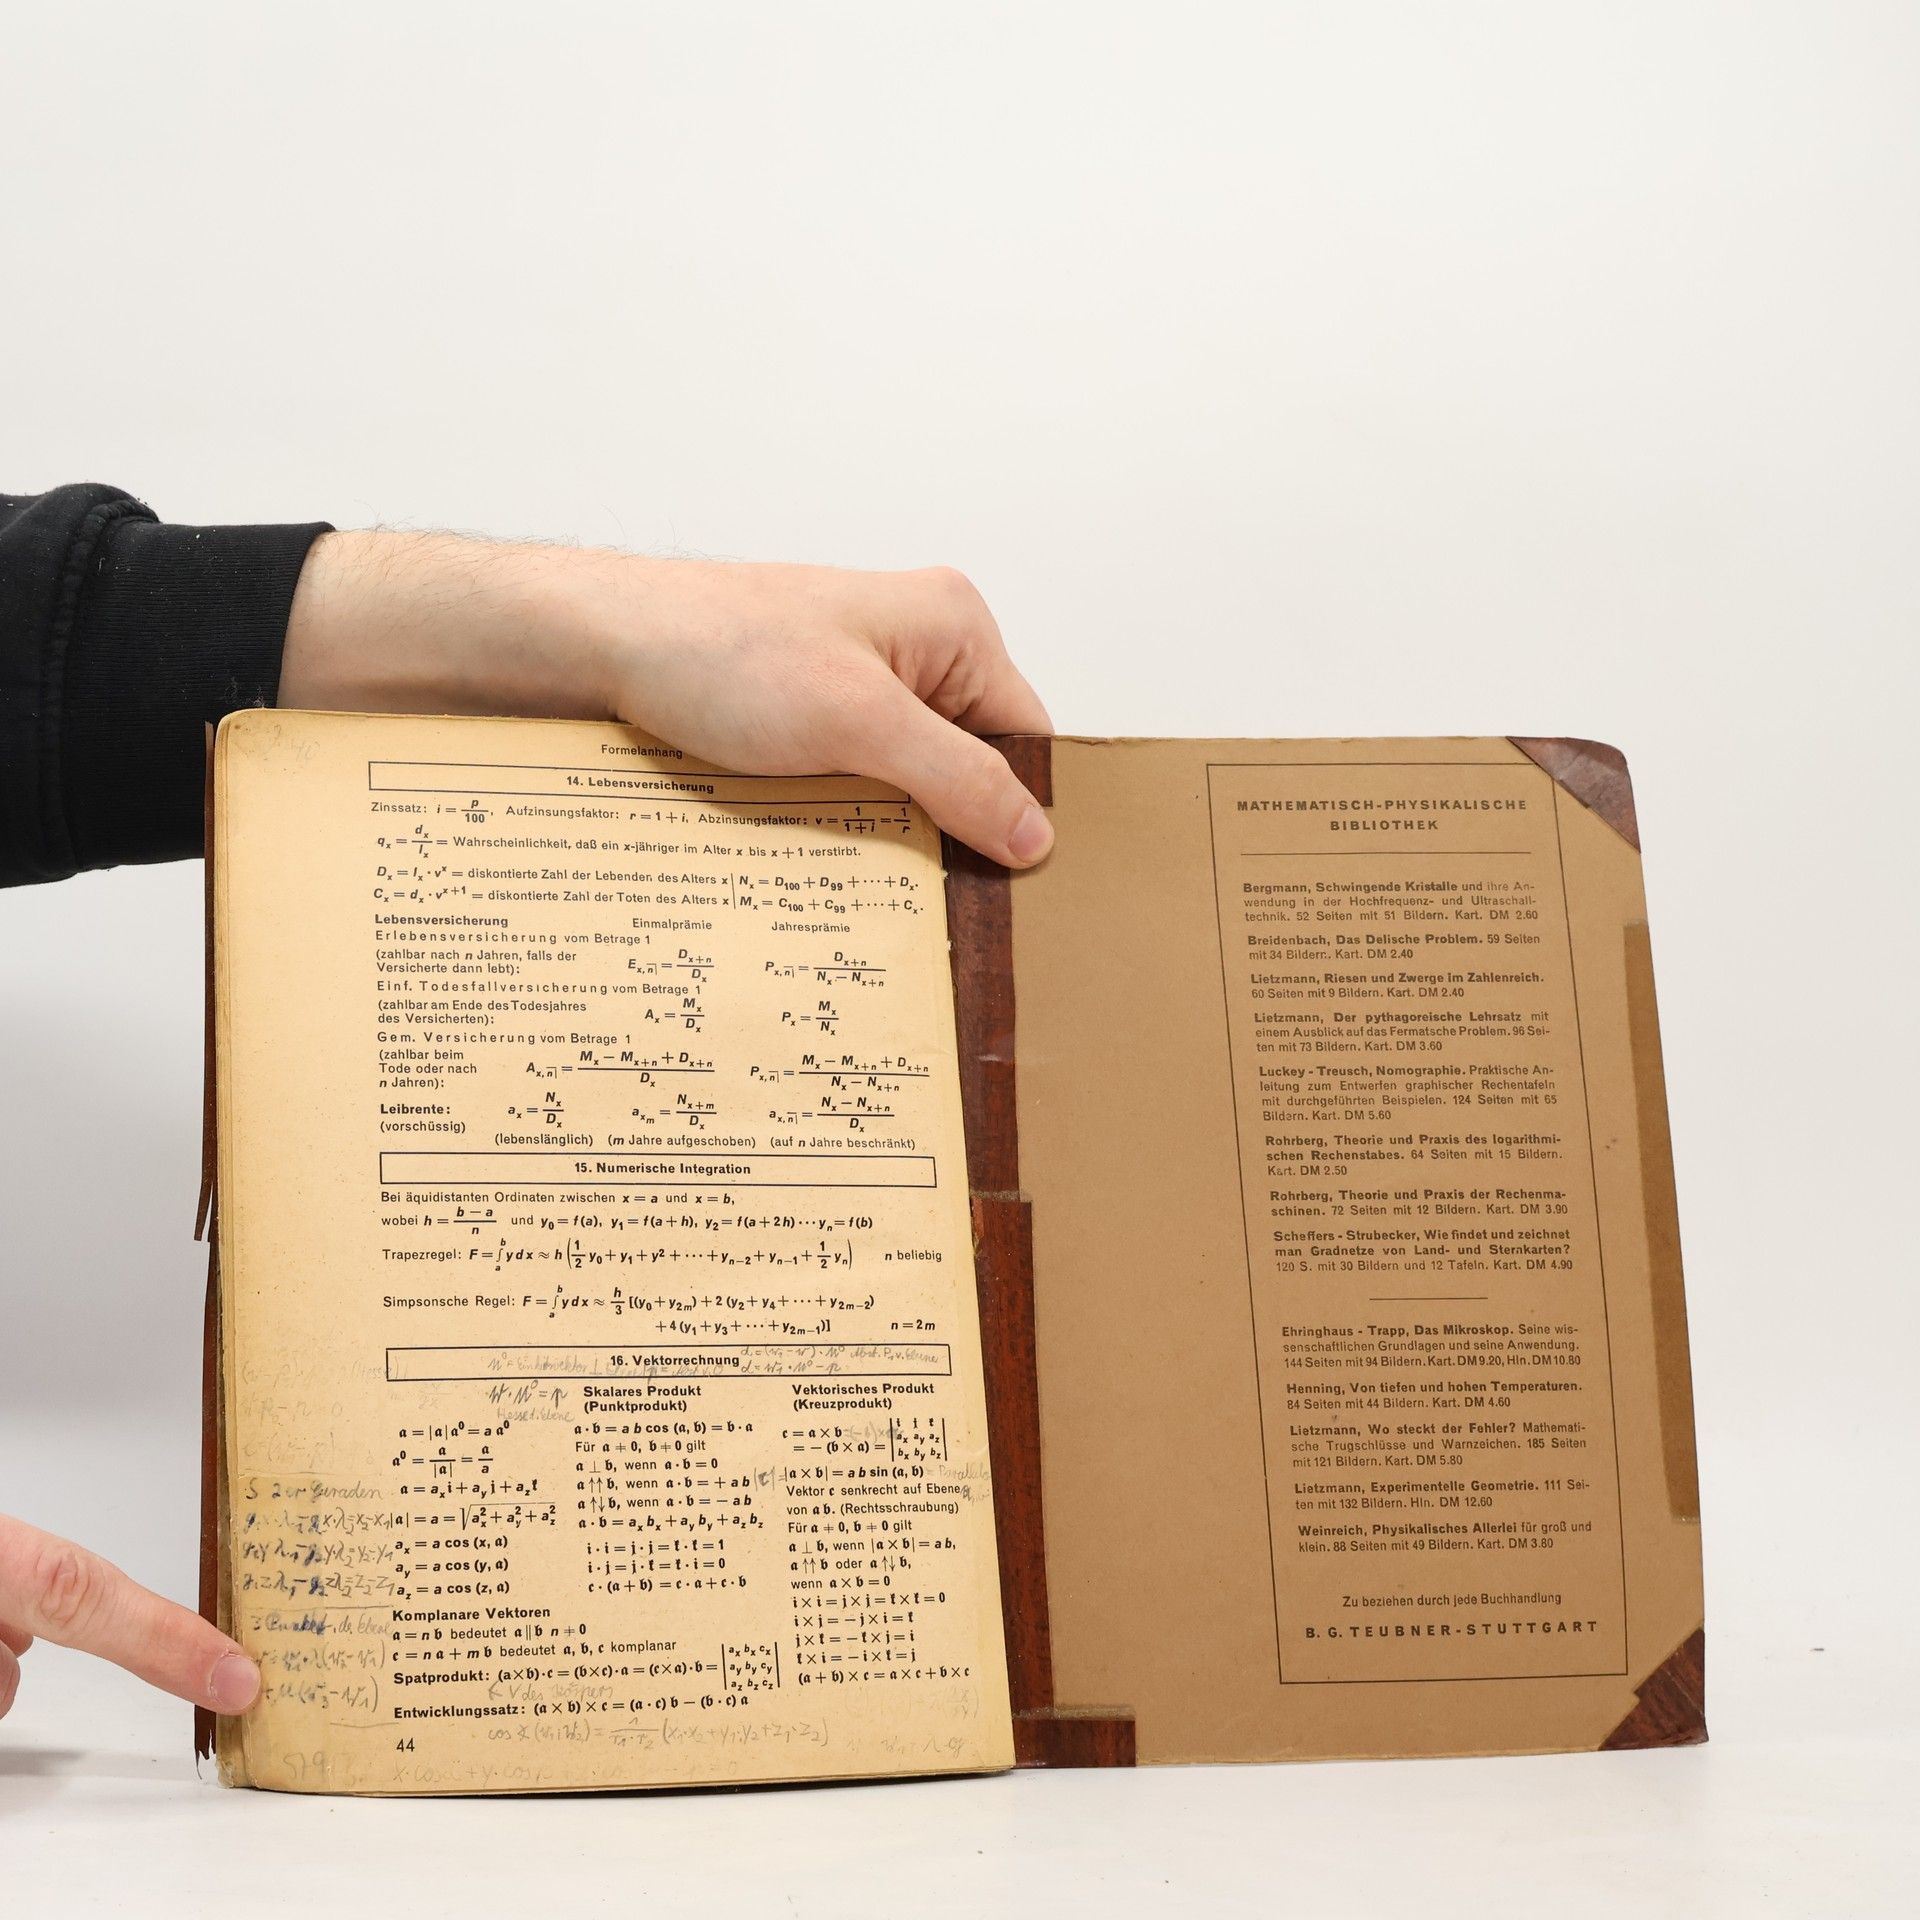 Formelanhang
14. Lebensversicherung
Zinssatz: i = p/100, Aufzinsungsfaktor: r = 1 + i, Abzinsungsfaktor: v = 1/(1+i) = 1/r
qₓ = dₓ/lₓ = Wahrscheinlichkeit, daß ein x-jähriger im Alter x bis x + 1 verstirbt.
Dₓ = lₓ · vˣ = diskontierte Zahl der Lebenden des Alters x | Nₓ = D₁₀₀ + D₉₉ + ··· + Dₓ.
Cₓ = dₓ · vˣ⁺¹ = diskontierte Zahl der Toten des Alters x | Mₓ = C₁₀₀ + C₉₉ + ··· + Cₓ.
Lebensversicherung Einmalprämie Jahresprämie
Erlebensversicherung vom Betrage 1
(zahlbar nach n Jahren, falls der
Versicherte dann lebt): E_{x,n̅|} = D_{x+n}/Dₓ P_{x,n̅|} = D_{x+n}/(Nₓ − N_{x+n})
Einf. Todesfallversicherung vom Betrage 1
(zahlbar am Ende des Todesjahres
des Versicherten): Aₓ = Mₓ/Dₓ Pₓ = Mₓ/Nₓ
Gem. Versicherung vom Betrage 1
(zahlbar beim
Tode oder nach A_{x,n̅|} = (Mₓ − M_{x+n} + D_{x+n})/Dₓ P_{x,n̅|} = (Mₓ − M_{x+n} + D_{x+n})/(Nₓ − N_{x+n})
n Jahren):
Leibrente: aₓ = Nₓ/Dₓ a_{xm} = N_{x+m}/Dₓ a_{x,n̅|} = (Nₓ − N_{x+n})/Dₓ
(vorschüssig)
(lebenslänglich) (m Jahre aufgeschoben) (auf n Jahre beschränkt)
15. Numerische Integration
Bei äquidistanten Ordinaten zwischen x = a und x = b,
wobei h = (b − a)/n und y₀ = f(a), y₁ = f(a + h), y₂ = f(a + 2h) ··· yₙ = f(b)
Trapezregel: F = ∫ₐᵇ y dx ≈ h (1/2 y₀ + y₁ + y² + ··· + yₙ₋₂ + yₙ₋₁ + 1/2 yₙ) n beliebig
Simpsonsche Regel: F = ∫ₐᵇ y dx ≈ h/3 [(y₀ + y₂ₘ) + 2 (y₂ + y₄ + ··· + y₂ₘ₋₂)
+ 4 (y₁ + y₃ + ··· + y₂ₘ₋₁)] n = 2m
16. Vektorrechnung
a = |a| a⁰ = a a⁰
a⁰ = a/|a| = a/a
a = aₓi + a_yj + a_zk
|a| = a = √(aₓ² + a_y² + a_z²)
aₓ = a cos (x, a)
a_y = a cos (y, a)
a_z = a cos (z, a)
Skalares Produkt
(Punktprodukt)
a · b = a b cos (a, b) = b · a
Für a ≠ 0, b ≠ 0 gilt
a ⊥ b, wenn a · b = 0
a ↑↑ b, wenn a · b = + ab
a ↑↓ b, wenn a · b = − ab
a · b = aₓ bₓ + a_y b_y + a_z b_z
i · i = j · j = k · k = 1
i · j = j · k = k · i = 0
c · (a + b) = c · a + c · b
Vektorisches Produkt
(Kreuzprodukt)
c = a × b
= − (b × a) = | i j k |
| aₓ a_y a_z |
| bₓ b_y b_z |
|a × b| = a b sin (a, b)
Vektor c senkrecht auf Ebene
von a b. (Rechtsschraubung)
Für a ≠ 0, b ≠ 0 gilt
a ⊥ b, wenn |a × b| = ab,
a ↑↑ b oder a ↑↓ b,
wenn a × b = 0
i × i = j × j = k × k = 0
i × j = − j × i = k
j × k = − k × j = i
k × i = − i × k = j
(a + b) × c = a × c + b × c
Komplanare Vektoren
a = n b bedeutet a ∥ b n ≠ 0
c = n a + m b bedeutet a, b, c komplanar
Spatprodukt: (a × b) · c = (b × c) · a = (c × a) · b = | aₓ bₓ cₓ |
| a_y b_y c_y |
| a_z b_z c_z |
Entwicklungssatz: (a × b) × c = (a · c) b − (b · c) a
44
S 2er Geraden
MATHEMATISCH-PHYSIKALISCHE
BIBLIOTHEK
Bergmann, Schwingende Kristalle und ihre An-
wendung in der Hochfrequenz- und Ultraschall-
technik. 52 Seiten mit 51 Bildern. Kart. DM 2.60
Breidenbach, Das Delische Problem. 59 Seiten
mit 34 Bildern. Kart. DM 2.40
Lietzmann, Riesen und Zwerge im Zahlenreich.
60 Seiten mit 9 Bildern. Kart. DM 2.40
Lietzmann, Der pythagoreische Lehrsatz mit
einem Ausblick auf das Fermatsche Problem. 96 Sei-
ten mit 73 Bildern. Kart. DM 3.60
Luckey - Treusch, Nomographie. Praktische An-
leitung zum Entwerfen graphischer Rechentafeln
mit durchgeführten Beispielen. 124 Seiten mit 65
Bildern. Kart. DM 5.60
Rohrberg, Theorie und Praxis des logarithmi-
schen Rechenstabes. 64 Seiten mit 15 Bildern.
Kart. DM 2.50
Rohrberg, Theorie und Praxis der Rechenma-
schinen. 72 Seiten mit 12 Bildern. Kart. DM 3.90
Scheffers - Strubecker, Wie findet und zeichnet
man Gradnetze von Land- und Sternkarten?
120 S. mit 30 Bildern und 12 Tafeln. Kart. DM 4.90
Ehringhaus - Trapp, Das Mikroskop. Seine wis-
senschaftlichen Grundlagen und seine Anwendung.
144 Seiten mit 94 Bildern. Kart. DM 9.20, Hln. DM 10.80
Henning, Von tiefen und hohen Temperaturen.
84 Seiten mit 44 Bildern. Kart. DM 4.60
Lietzmann, Wo steckt der Fehler? Mathemati-
sche Trugschlüsse und Warnzeichen. 185 Seiten
mit 121 Bildern. DM 5.80
Lietzmann, Experimentelle Geometrie. 111 Sei-
ten mit 132 Bildern. Hln. DM 12.60
Weinreich, Physikalisches Allerlei für groß und
klein. 88 Seiten mit 49 Bildern. DM 3.80
Zu beziehen durch jede Buchhandlung
B. G. TEUBNER - STUTTGART